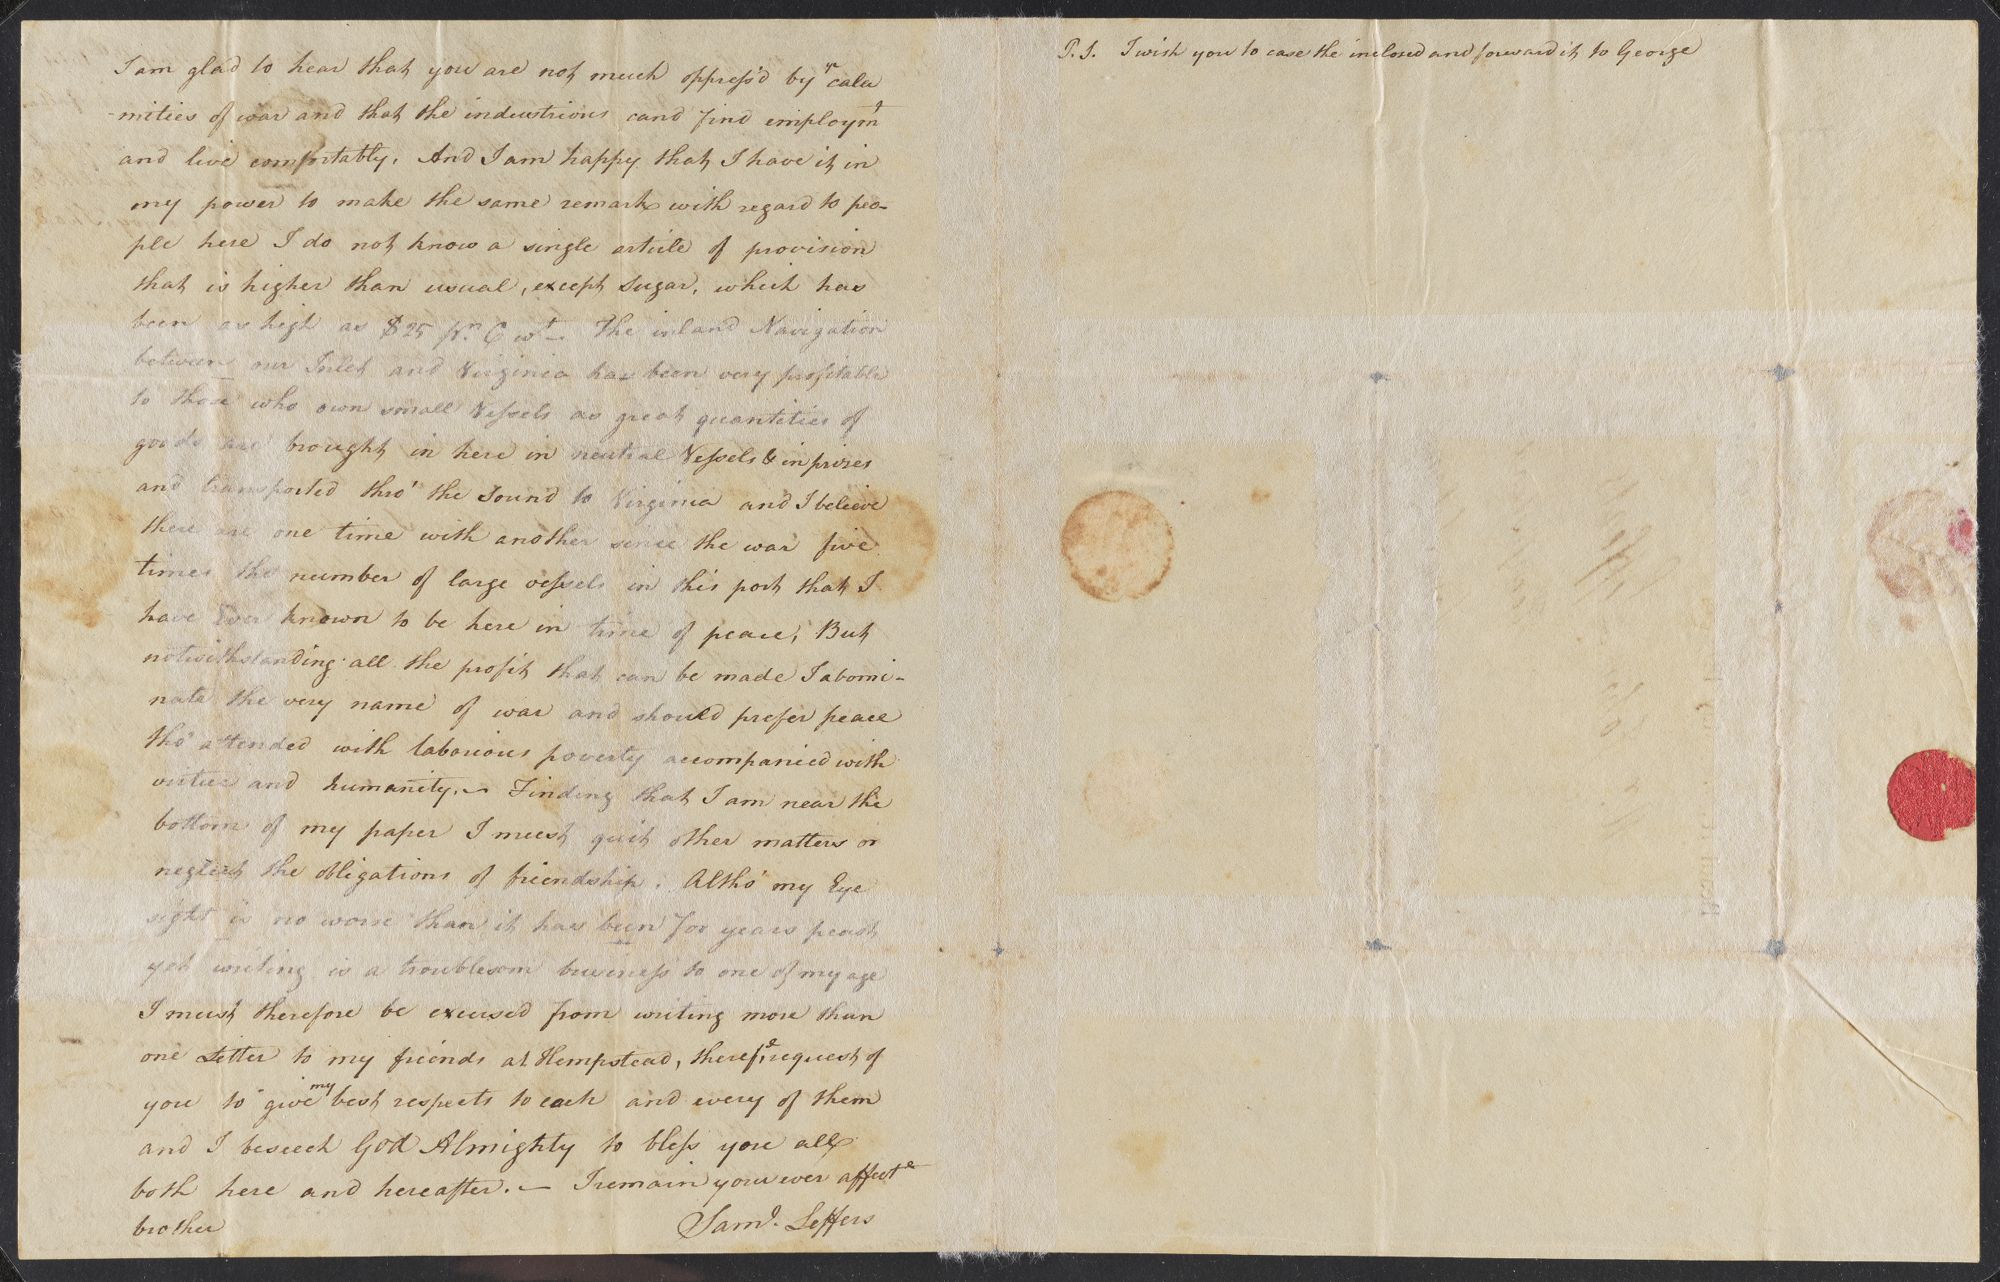 I am glad to hear that you are not much oppress'd by yr cala
-mities of war and that the industrious cand find employmt
and live comfortably. And I am happy that I have it in
my power to make the same remark with regard to peo-
ple here I do not know a single article of provision
that is higher than usual, except Sugar, which has
been as high as $25 pr. C wt –. The inland Navigation
between our Inlet and Virginia has been very profitable
to those who own small Vessels as great quantities of
goods are brought in here in neutral Vessels & in prizes
and transported thro' the Sound to Virginia and I believe
there are one time with another since the war five
times the number of large vessels in this port that I
have Ever known to be here in time of peace; But
notwithstanding all the profit that can be made I abomi-
nate the very name of war and should prefer peace
tho' attended with laborious poverty accompanied with
virtue and humanity. – Finding that I am near the
bottom of my paper I must quit other matters or
neglect the obligations of friendship. Altho' my Eye
sight is no worse than it has been for years peast
yet writing is a troublesom business to one of my age
I must therefore be excused from writing more than
one Letter to my friends at Hempstead, therefe. request of
you to give my best respects to each and every of them
and I beseech God Almighty to bless you all
both here and hereafter. – I remain your ever affecte
brother Saml. Leffers
P.S. I wish you to case the inclosed and forward it to George